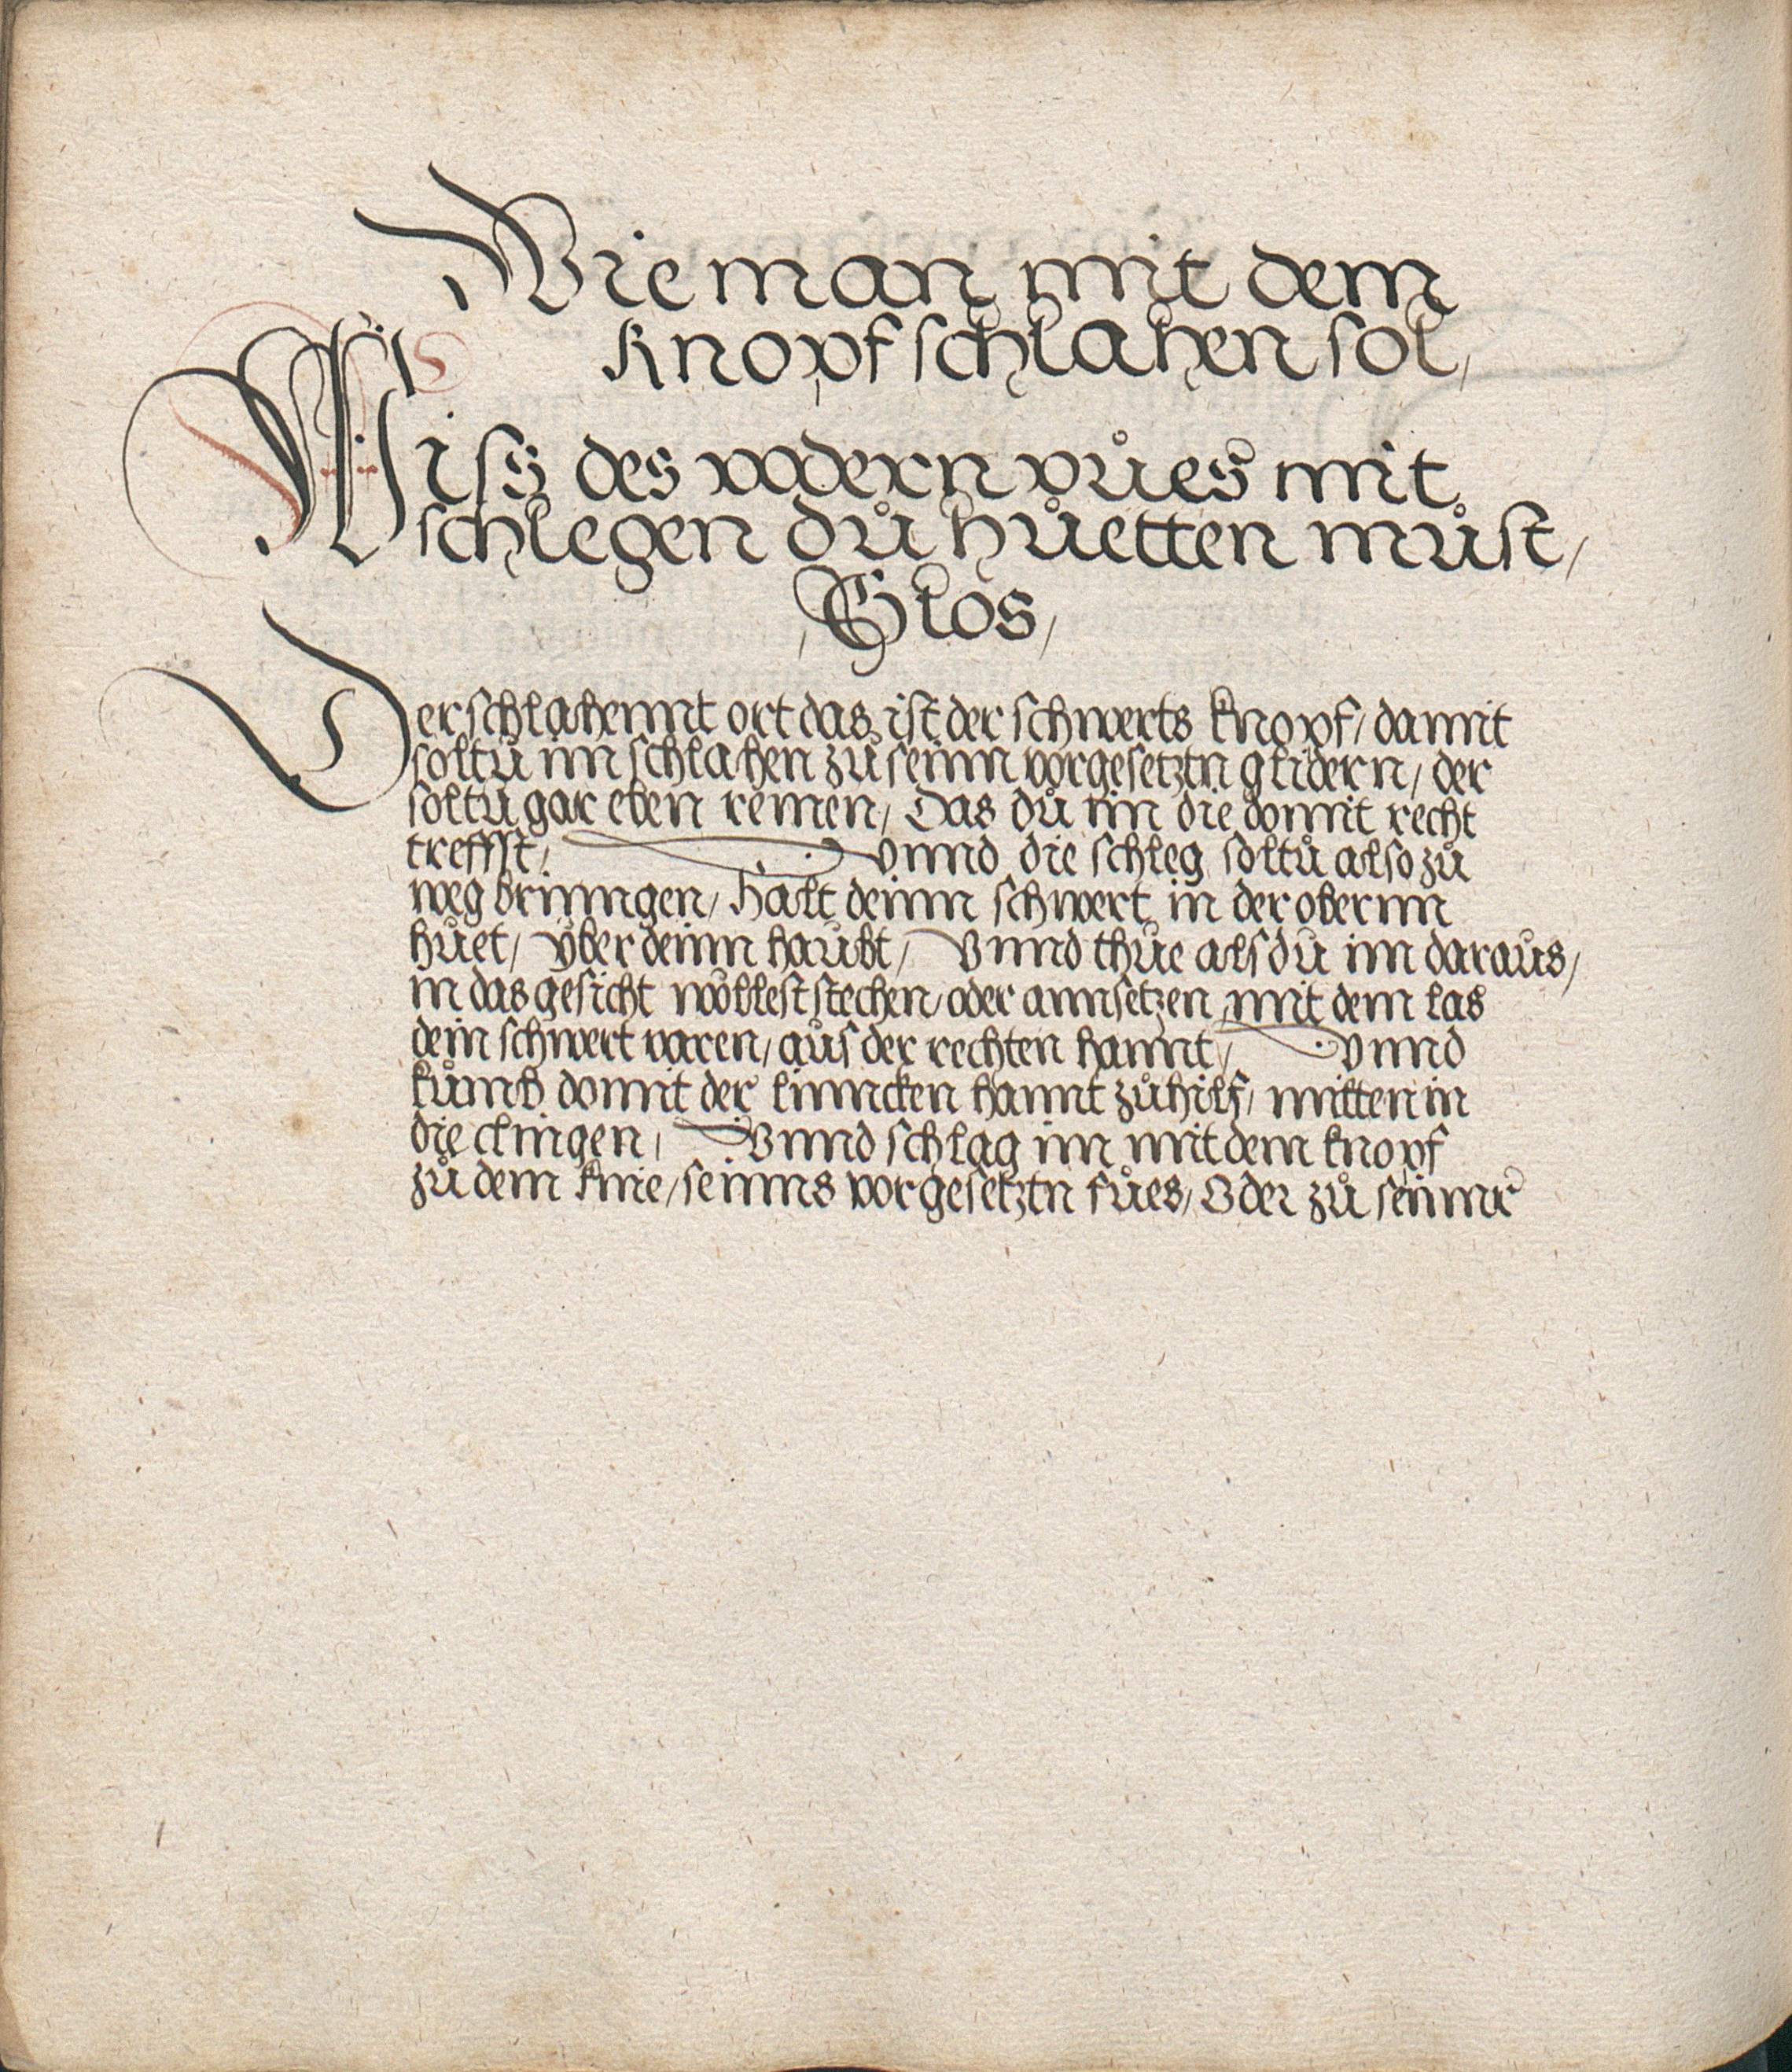 Wie man mit dem
knopf schlahen sol,
Miſz des vodern vůes mit
schlegen dů hůetten můst,
Glos,
Der schlahennt ort das ist der schwerts knopf, damit
soltů im schlahen zů seinn vorgesetztn glidern, der
soltů gar eben remen, Das dů im die domit recht
treffst, vnnd die schleg soltů also zů
weg brinngen, Halt deinn schwert in der obernn
hůet, ÿber deinn haubt, Vnnd thue als du im daraůs,
in das gesicht wöllest stechen, oder annsetzen mit dem las
dein schwert varen, aůs der rechten hannt, Vnnd
kůmb domit der linncken hannt zů hilf, mitten in
die clingen, Vnnd schlag im mit dem knopf
zů dem knie, seinns vorgesetztn fůes, Oder zů seinnr